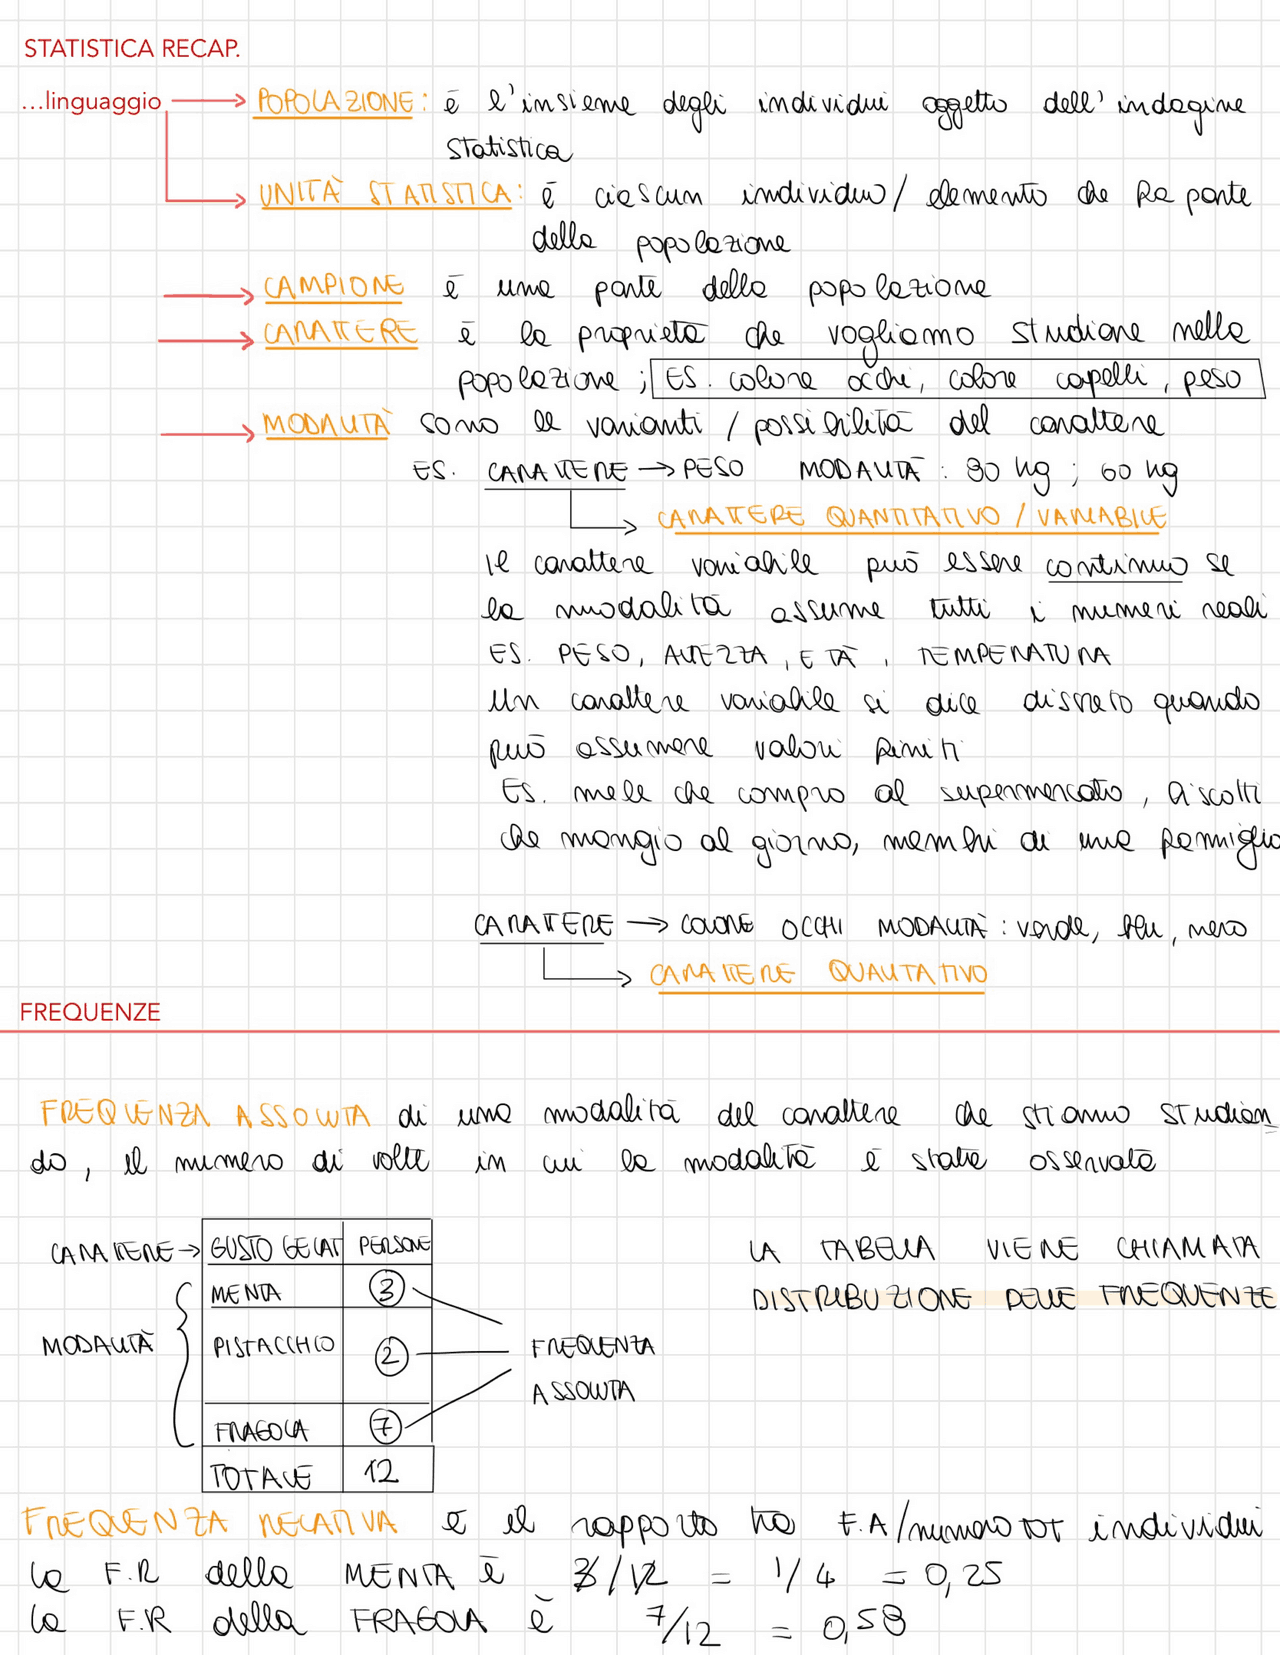 STATISTICA RECAP.
...linguaggio → POPOLAZIONE: è l'insieme degli individui oggetto dell'indagine
statistica
→ UNITÀ STATISTICA: è ciascun individuo/ elemento che fa parte
della popolazione
→ CAMPIONE è una parte della popolazione
→ CARATTERE è la proprietà che vogliamo studiare nella
popolazione; ES. colore occhi, colore capelli, peso
→ MODALITÀ sono le varianti / possibilità del carattere
ES. CARATTERE → PESO MODALITÀ: 80 kg; 60 kg
→ CARATTERE QUANTITATIVO / VARIABILE
Il carattere variabile può essere continuo se
la modalità assume tutti i numeri reali
ES. PESO, ALTEZZA, ETÀ, TEMPERATURA
Un carattere variabile si dice discreto quando
può assumere valori finiti
ES. mele che compro al supermercato, biscotti
che mangio al giorno, membri di una famiglia
CARATTERE → COLORE OCCHI MODALITÀ: verde, blu, nero
→ CARATTERE QUALITATIVO
FREQUENZE
FREQUENZA ASSOLUTA di una modalità del carattere che stiamo studian
do, il numero di volte in cui la modalità è stata osservata
CARATTERE → GUSTO GELAT PERSONE
LA TABELLA VIENE CHIAMATA
MENTA 3
DISTRIBUZIONE DELLE FREQUENZE
MODALITÀ PISTACCHIO 2 FREQUENZA
ASSOLUTA
FRAGOLA 7
TOTALE 12
FREQUENZA RELATIVA è il rapporto tra F.A/numero TOT individui
la F.R della MENTA è 3/12 = 1/4 = 0,25
la F.R della FRAGOLA è 7/12 = 0,58